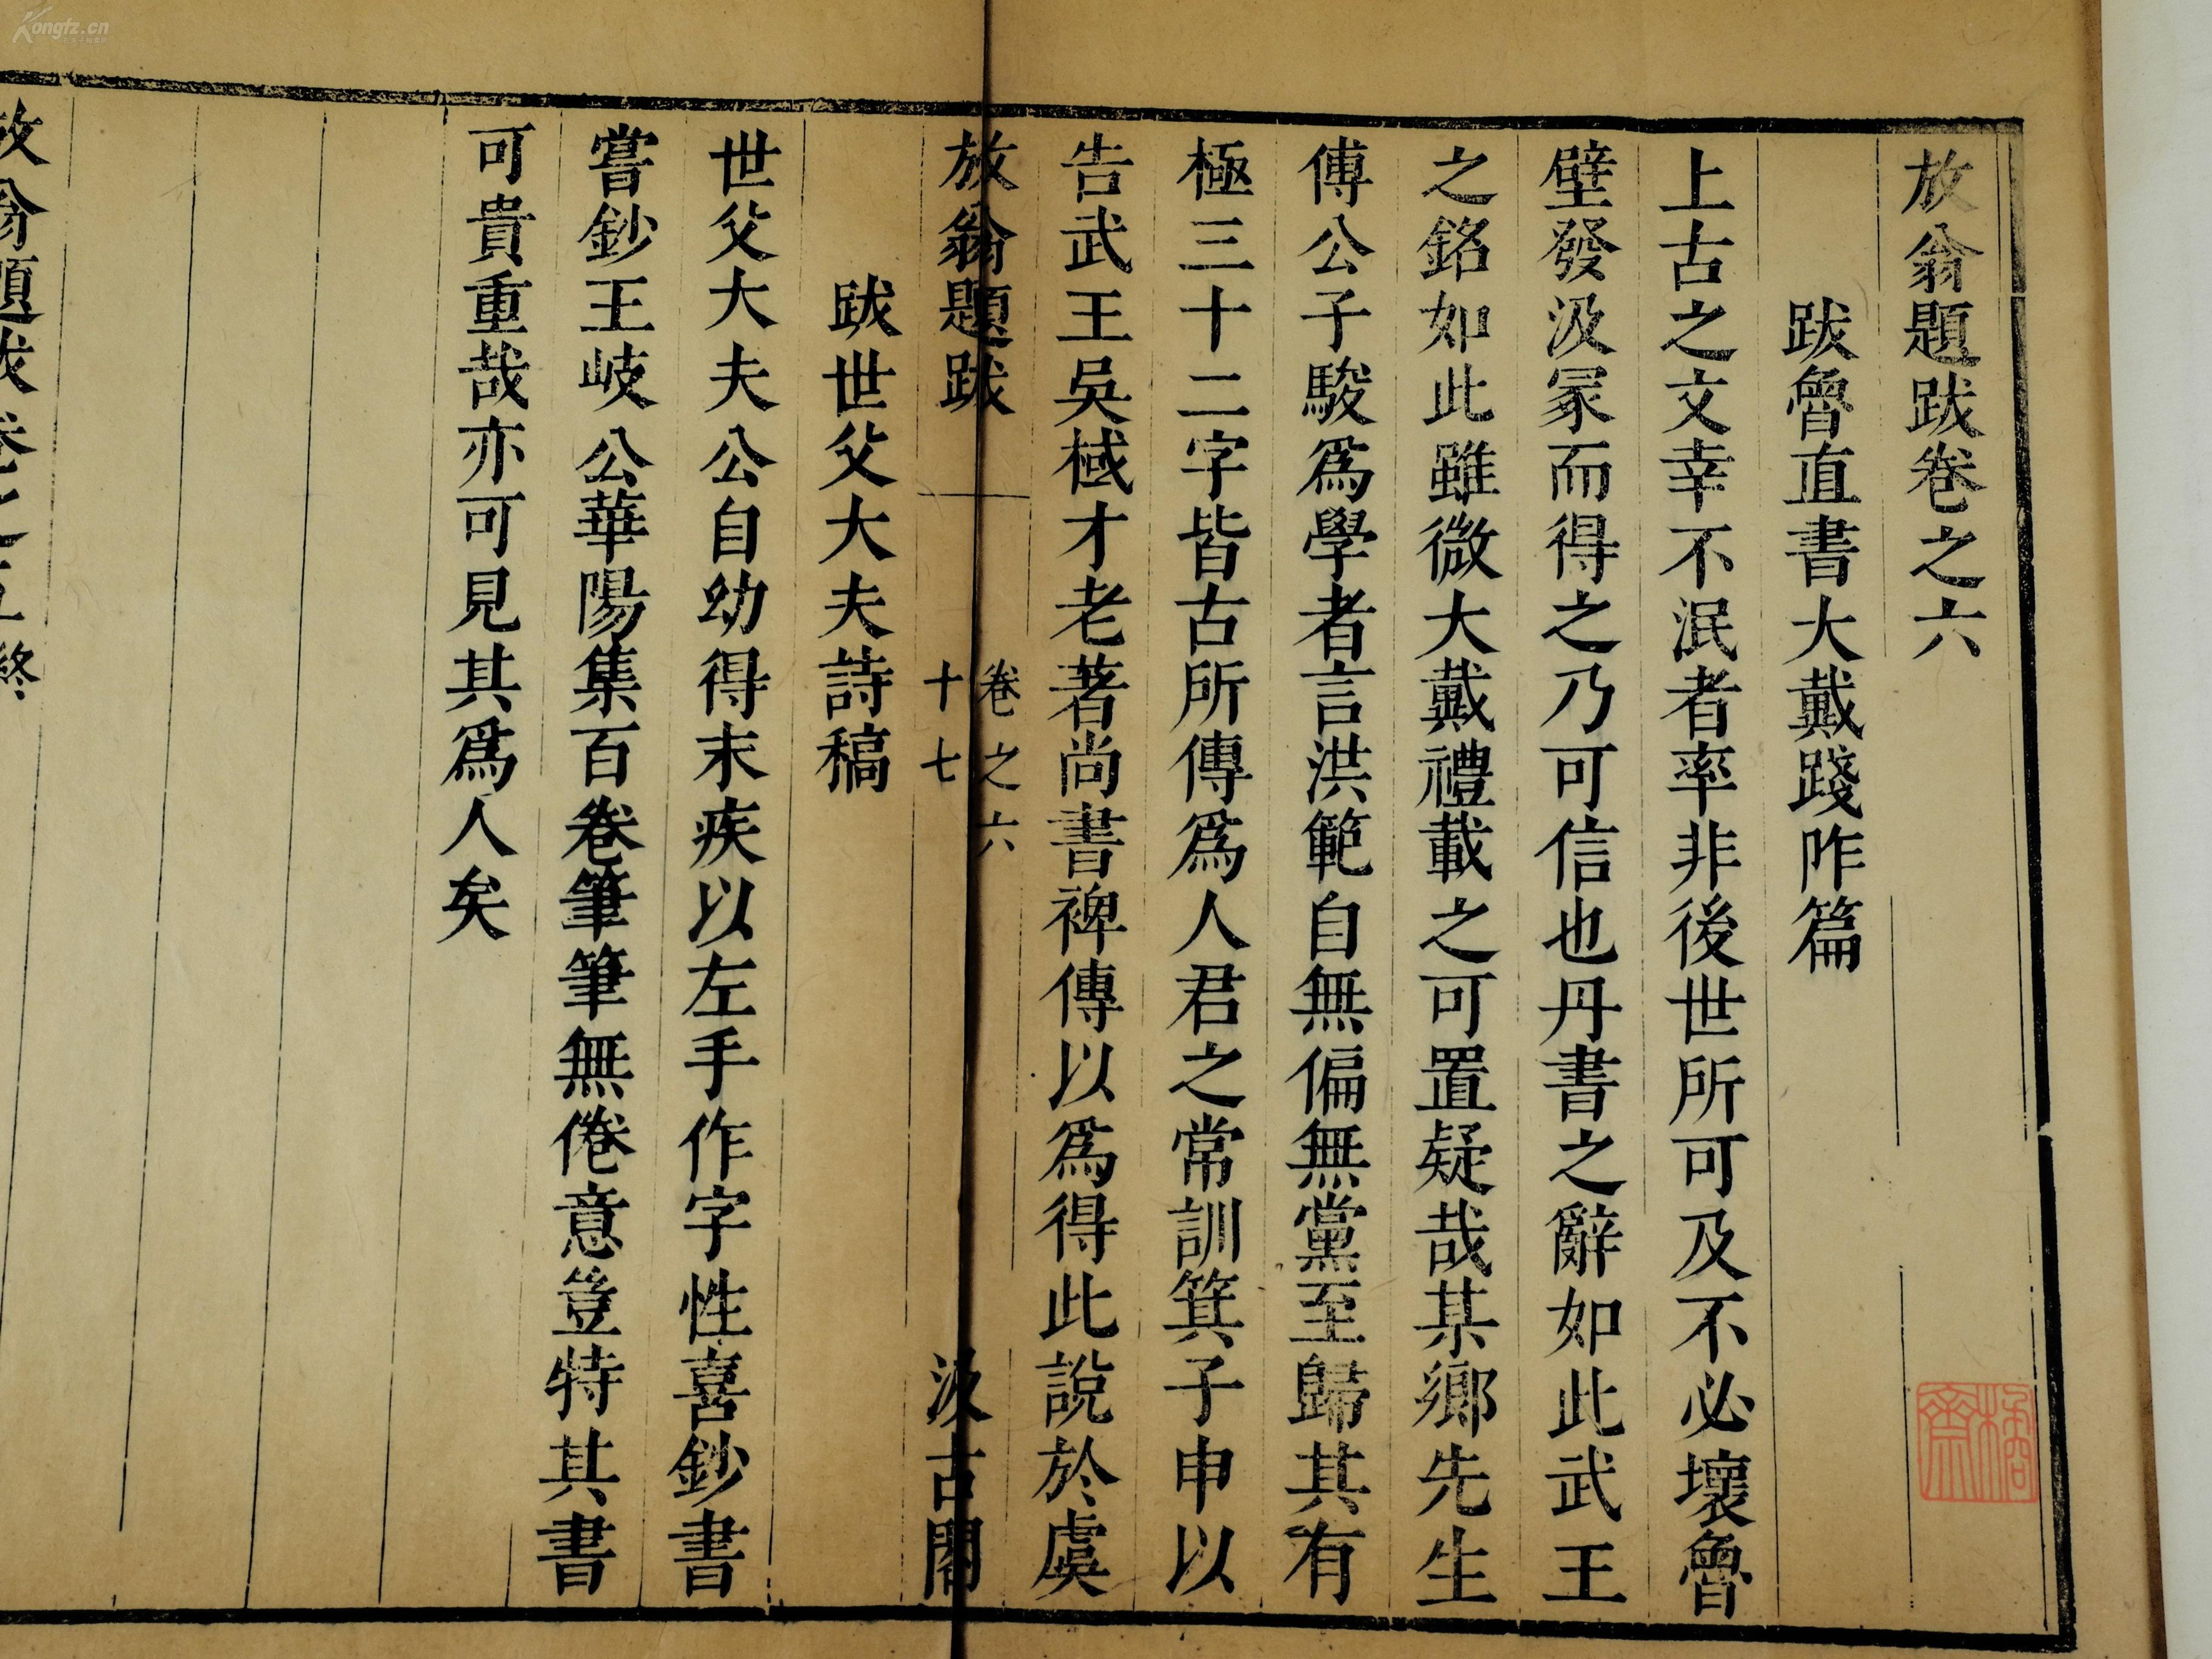 放翁題跋卷之六
跋魯直書大戴踐咋篇
上古之文幸不泯者率非後世所可及不必壞魯
壁發汲冢而得之乃可信也丹書之辭如此武王
之銘如此雖微大戴禮載之可置疑哉某鄉先生
傅公子駿爲學者言洪範自無偏無黨至歸其有
極三十二字皆古所傳爲人君之常訓箕子申以
告武王吳棫才老著尚書裨傳以爲得此說於虞
放翁題跋
卷之六
十七
汲古閣
跋世父大夫詩稿
世父大夫公自幼得末疾以左手作字性喜鈔書
嘗鈔王岐公華陽集百卷筆筆無倦意豈特其書
可貴重哉亦可見其爲人矣
放翁題跋卷之五終
Kongfz.cn